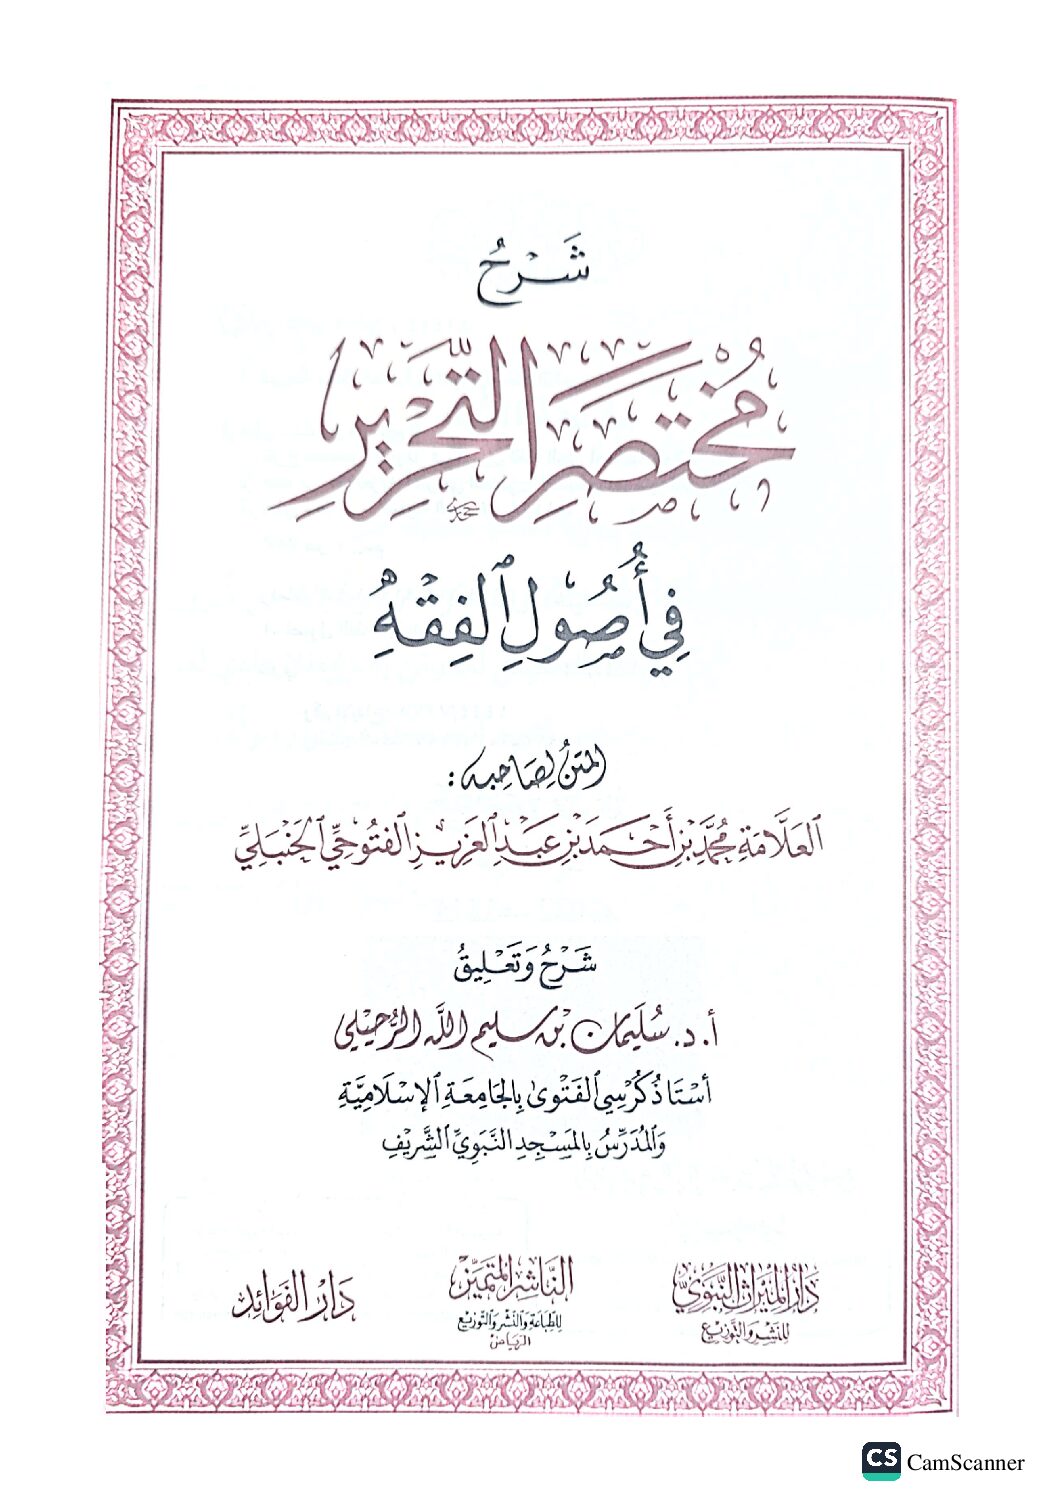 شَرْحُ
مُخْتَصَرِ التَّحْرِيرِ
فِي أُصُولِ الفِقْهِ
المتنُ لصَاحِبه:
العَلَّامَةِ مُحَمَّدِ بْنِ أَحْمَدَ بْنِ عَبْدِ العَزِيزِ الفتُوحِيِّ الحَنْبَلِيِّ
شَرْحُ وَتَعْلِيقُ
أ. د. سُلَيمَان بْن سليم اللَّه الرُّحَيْلي
أسْتَاذُ كُرْسِي الفَتْوى بِالجَامِعَةِ الإِسْلَامِيَّةِ
وَالمُدَرِّسُ بِالمَسْجِدِ النَّبَوِيِّ الشَّرِيفِ
دَارُ المِيرَاثِ النَّبَوِيِّ
للنَّشْرِ وَالتَّوْزِيْع
النَّاشِر المُتَمَيِّز
لِلطِّبَاعَةِ وَالنَّشْرِ وَالتَّوْزِيْعِ
الرِّيَاضْ
دَارُ الفَوَائِد
CS CamScanner